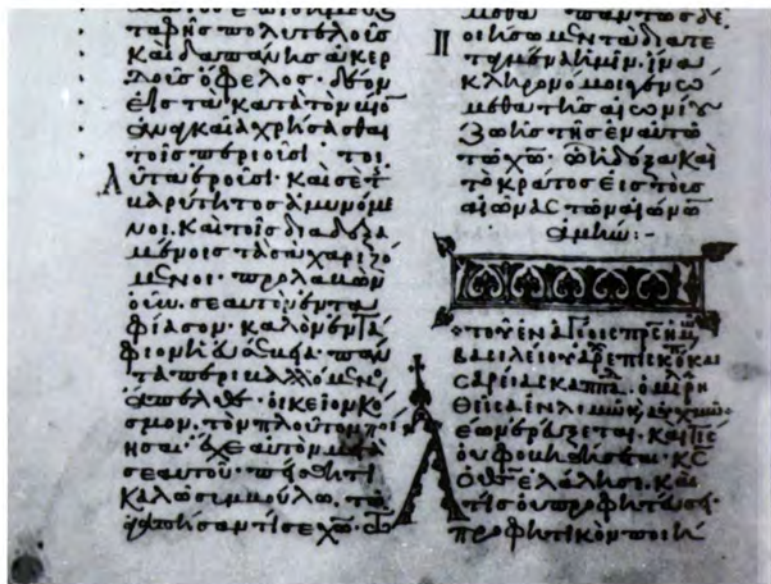 ταφῆς πολυτελοῦς
καὶ δαπάνης ἀκερ
δοῦς ὄφελος· δέον
εἰς τὰ κατὰ τὸν βίο̄
ἀναγκαῖα χρήσασθαι
τοῖς περιοῦσι· τοι
αῦτα ἐροῦσι· καὶ σὲ τῆς
βαρύτητος ἀμυνόμε
νοι. καὶ τοῖς διαδεξα
μένοις τὰ σὰ χαριζό
μενοι· προλαβὼν
οὖν σεαυτὸν ἐντα
φίασον· καλὸν ἐντά
φιον ἡ εὐσέβεια· πάν
τα περιβαλλόμενος
ἄπελθε· οἰκεῖον κό
σμον. τὸν πλοῦτον ποί
ησαι· ἔχε αὐτὸν μετὰ
σεαυτοῦ· πείσθητι
καλῶ συμβούλω. τῶ
ἀγαπήσαντί σε χω̄·
μεθα πάντως δὲ
ποιήσωμεν τὰ διατε
ταγμένα ἡμῖν. ἵνα
κληρονόμοι γενώ
μεθα τῆς αἰωνίου
ζωῆς τῆς ἐν αὐτῶ
τῶ χω̄· ὧ ἡ δόξα καὶ
τὸ κράτος εἰς τοὺς
αἰῶνας τῶν αἰώνω̄
ἀμήν:-
τοῦ ἐν ἁγίοις πρ̄ς ἡμ
βασιλείου ἀρχεπισκο και
σαρείας καππα. ὁμιλ ρη
θεῖσα ἐν λιμῶ κ αὐχμῶ·
λέων ἐρεύξεται. καὶ τίς
οὐ φοβηθήσεται· κς̄
ὁ θς̄ ἐλάλησε. καὶ
τίς οὐ προφητεύσει·
προφητικὸν ποιη